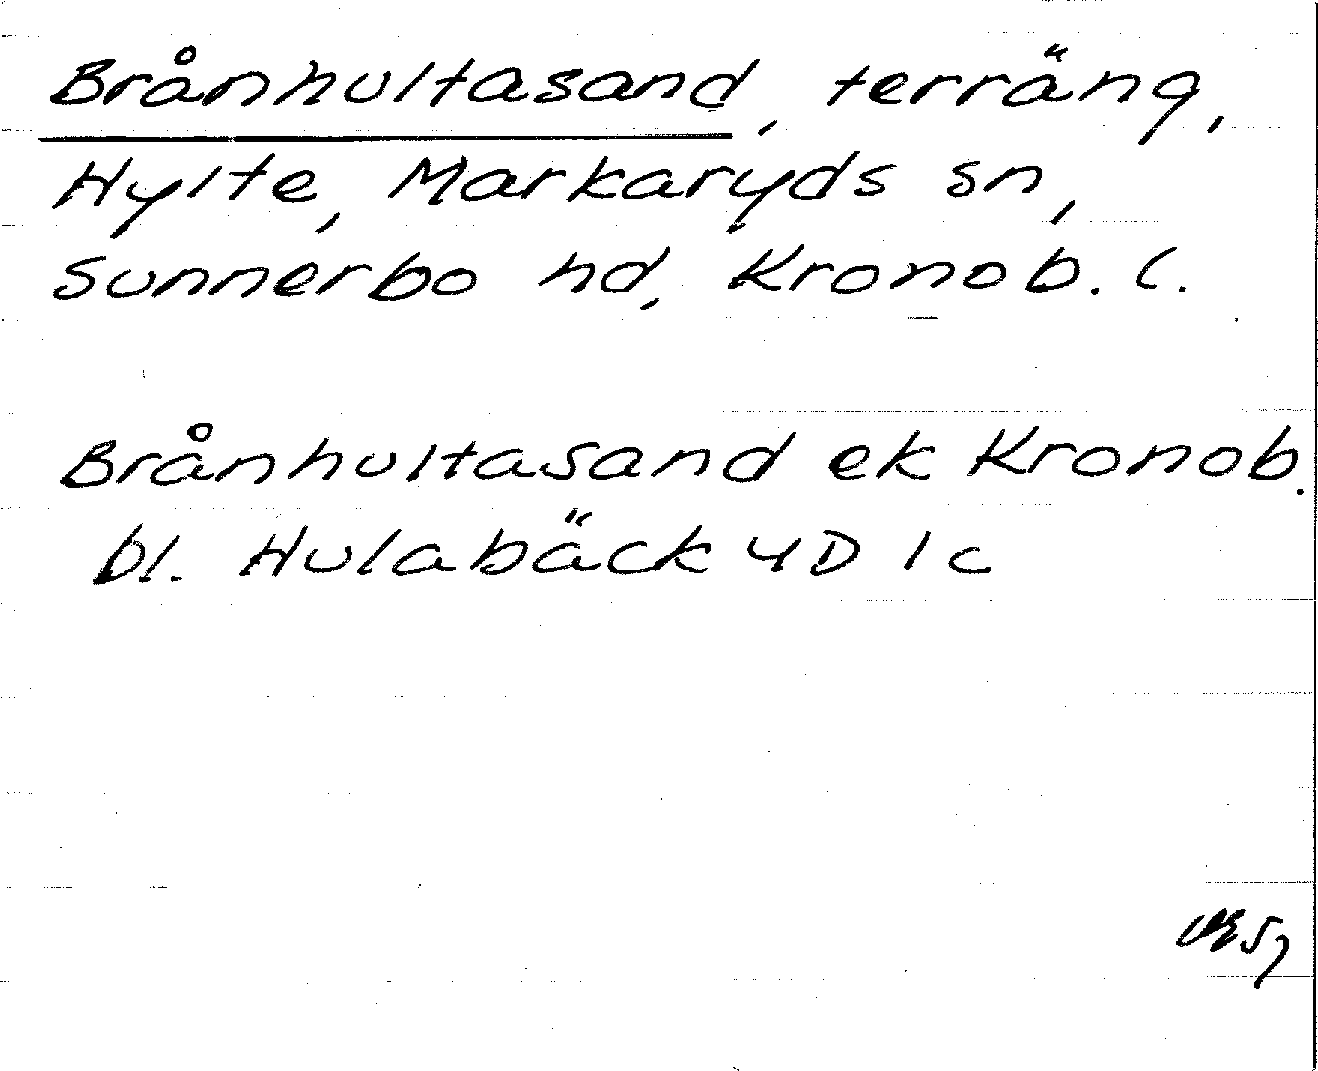 Brånhultasand, terräng,
Hylte, Markaryds sn,
Sunnerbo hd, Kronob. l.
Brånhultasand ek Kronob.
bl. Hulabäck 4D 1c